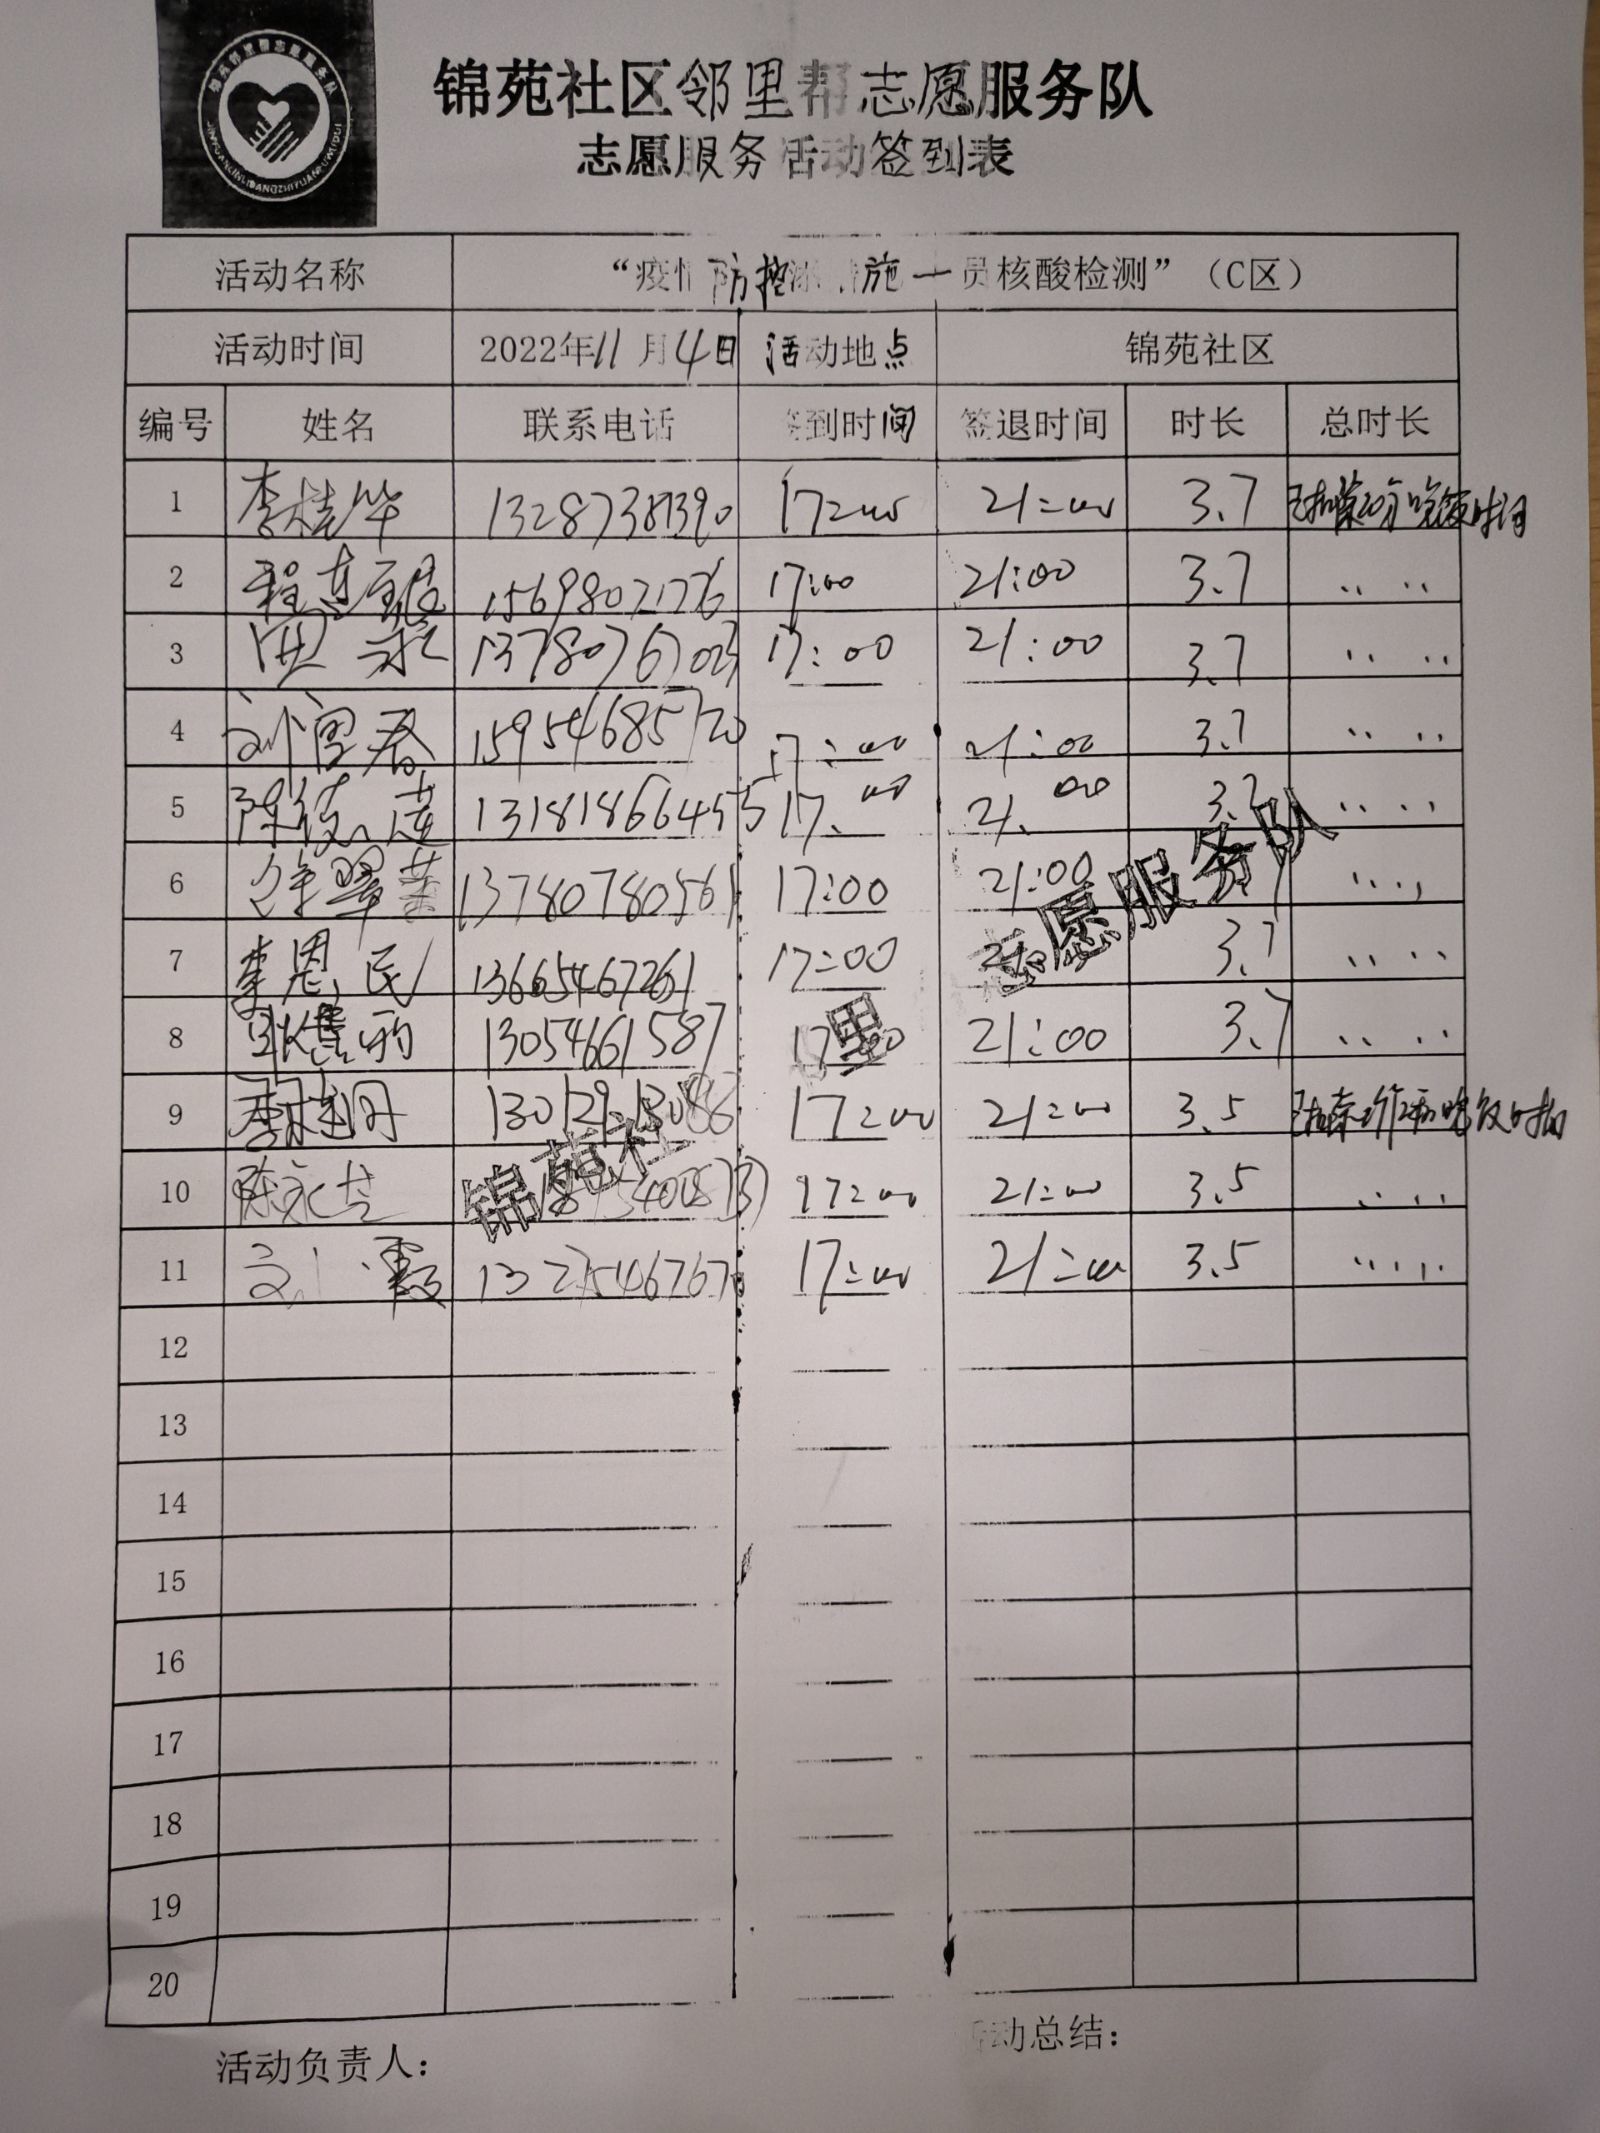 锦苑邻里帮志愿服务队
锦苑社区邻里帮志愿服务队
志愿服务活动签到表
活动名称 “疫情防控 施一 员核酸检测”（C区）
活动时间 2022年11月4日 活动地点 锦苑社区
编号 姓名 联系电话 签到时间 签退时间 时长 总时长
1 李桂华 13287381390 17:00 21:00 3.7 已扣案20分吃饭时间
2 15698071776 17:00 21:00 3.7 〃 〃
3 17:00 21:00 3.7 〃 〃
4 15954685720 17:00 21:00 3.7 〃 〃
5 13181866455 17:00 21:00 3.7 〃 〃
6 徐翠 13780780561 17:00 21:00 〃 〃
7 李恩民 13665467261 17:00 3.7 〃 〃
8 13054661587 17:00 21:00 3.7 〃 〃
9 17:00 21:00 3.5 吃饭时间
10 陈永芝 17:00 21:00 3.5 〃 〃
11 刘霞 17:00 21:00 3.5 〃 〃
12
13
14
15
16
17
18
19
20
锦苑社 里 志愿服务队
活动负责人： 活动总结：